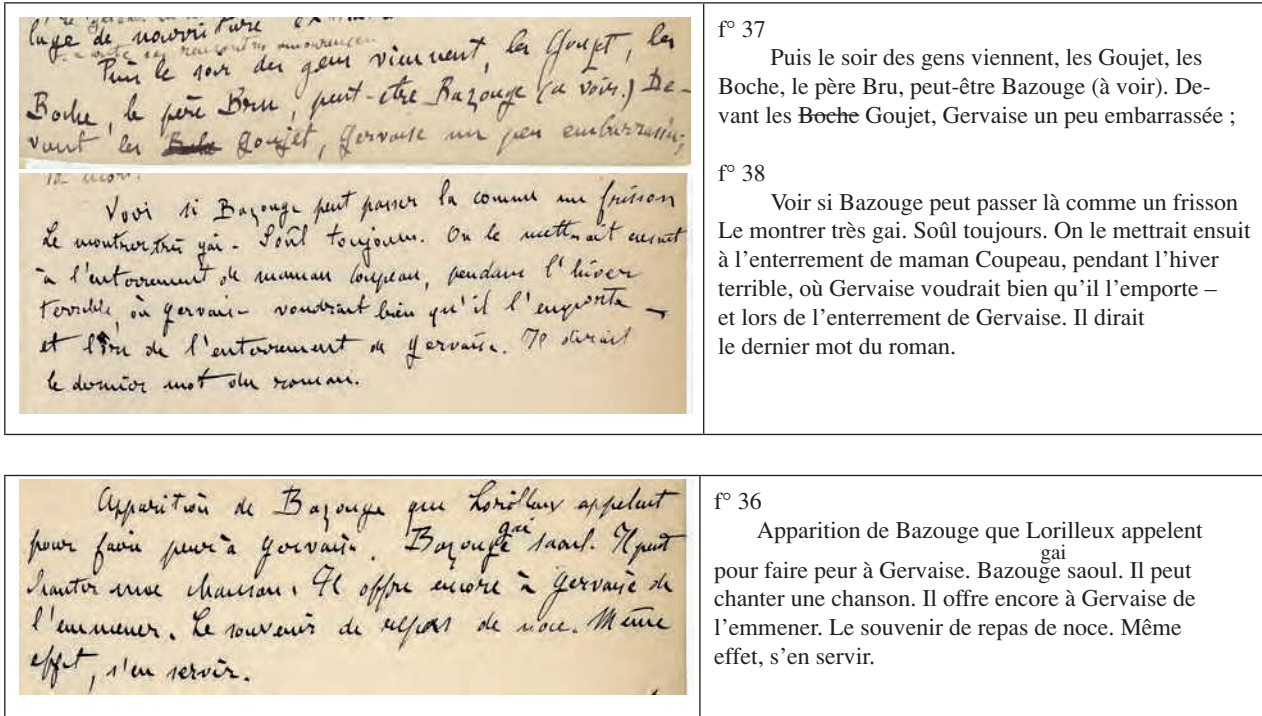 de nourriture
Puis le soir des gens viennent, les Goujet, les
Boche, le père Bru, peut-être Bazouge (à voir.) De-
vant les Goujet, Gervaise un peu embarrassée ;
Voir si Bazouge peut passer là comme un frisson
Le montrer très gai - Soûl toujours. On le mettrait ensuit
à l'enterrement de maman Coupeau, pendant l'hiver
terrible, où Gervaise voudrait bien qu'il l'emporte –
et lors de l'enterrement de Gervaise. Il dirait
le dernier mot du roman.
f° 37
Puis le soir des gens viennent, les Goujet, les
Boche, le père Bru, peut-être Bazouge (à voir). De-
vant les Boche Goujet, Gervaise un peu embarrassée ;
f° 38
Voir si Bazouge peut passer là comme un frisson
Le montrer très gai. Soûl toujours. On le mettrait ensuit
à l'enterrement de maman Coupeau, pendant l'hiver
terrible, où Gervaise voudrait bien qu'il l'emporte –
et lors de l'enterrement de Gervaise. Il dirait
le dernier mot du roman.
Apparition de Bazouge que Lorilleux appelent
gai
pour faire peur à Gervaise. Bazouge saoul. Il peut
chanter une chanson. Il offre encore à Gervaise de
l'emmener. Le souvenir de repas de noce. Même
effet, s'en servir.
f° 36
Apparition de Bazouge que Lorilleux appelent
gai
pour faire peur à Gervaise. Bazouge saoul. Il peut
chanter une chanson. Il offre encore à Gervaise de
l'emmener. Le souvenir de repas de noce. Même
effet, s'en servir.